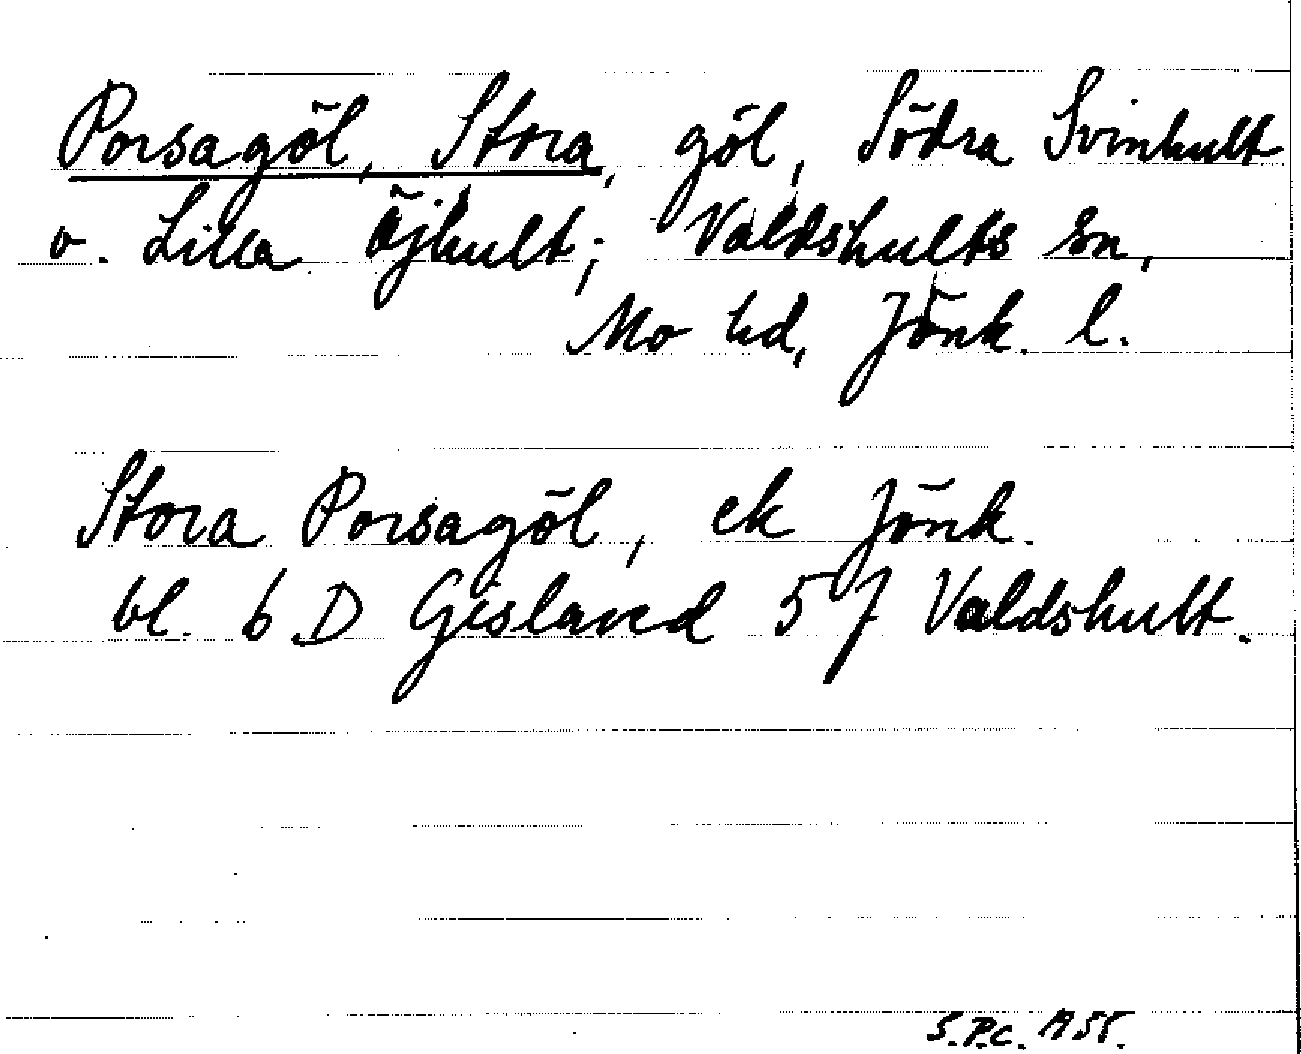 Porsagöl, Stora, göl, Södra Svinhult
o. Lilla Öjhult; Valdshults sn,
Mo hd, Jönk. l.
Stora Porsagöl, ek Jönk.
bl. 6 D Gislaved 5 f Valdshult.
S.P.C. 1955.